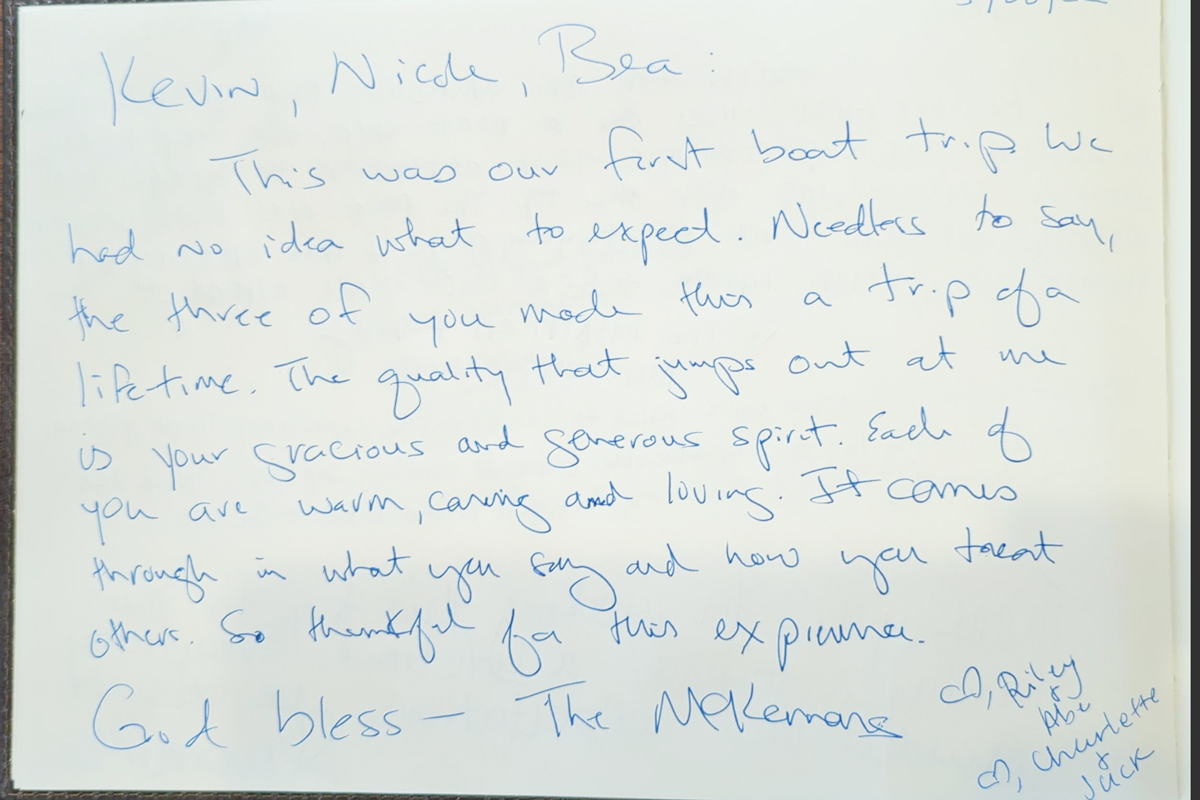 Kevin, Nicole, Bea:
This was our first boat trip We
had no idea what to expect. Needless to say,
the three of you made this a trip of a
lifetime. The quality that jumps out at me
is your gracious and generous spirit. Each of
you are warm, caring and loving. It comes
through in what you say and how you treat
others. So thankful for this experience.
God bless — The McKernans
♡, Riley
&
Abe
♡, Charlette
&
Jack